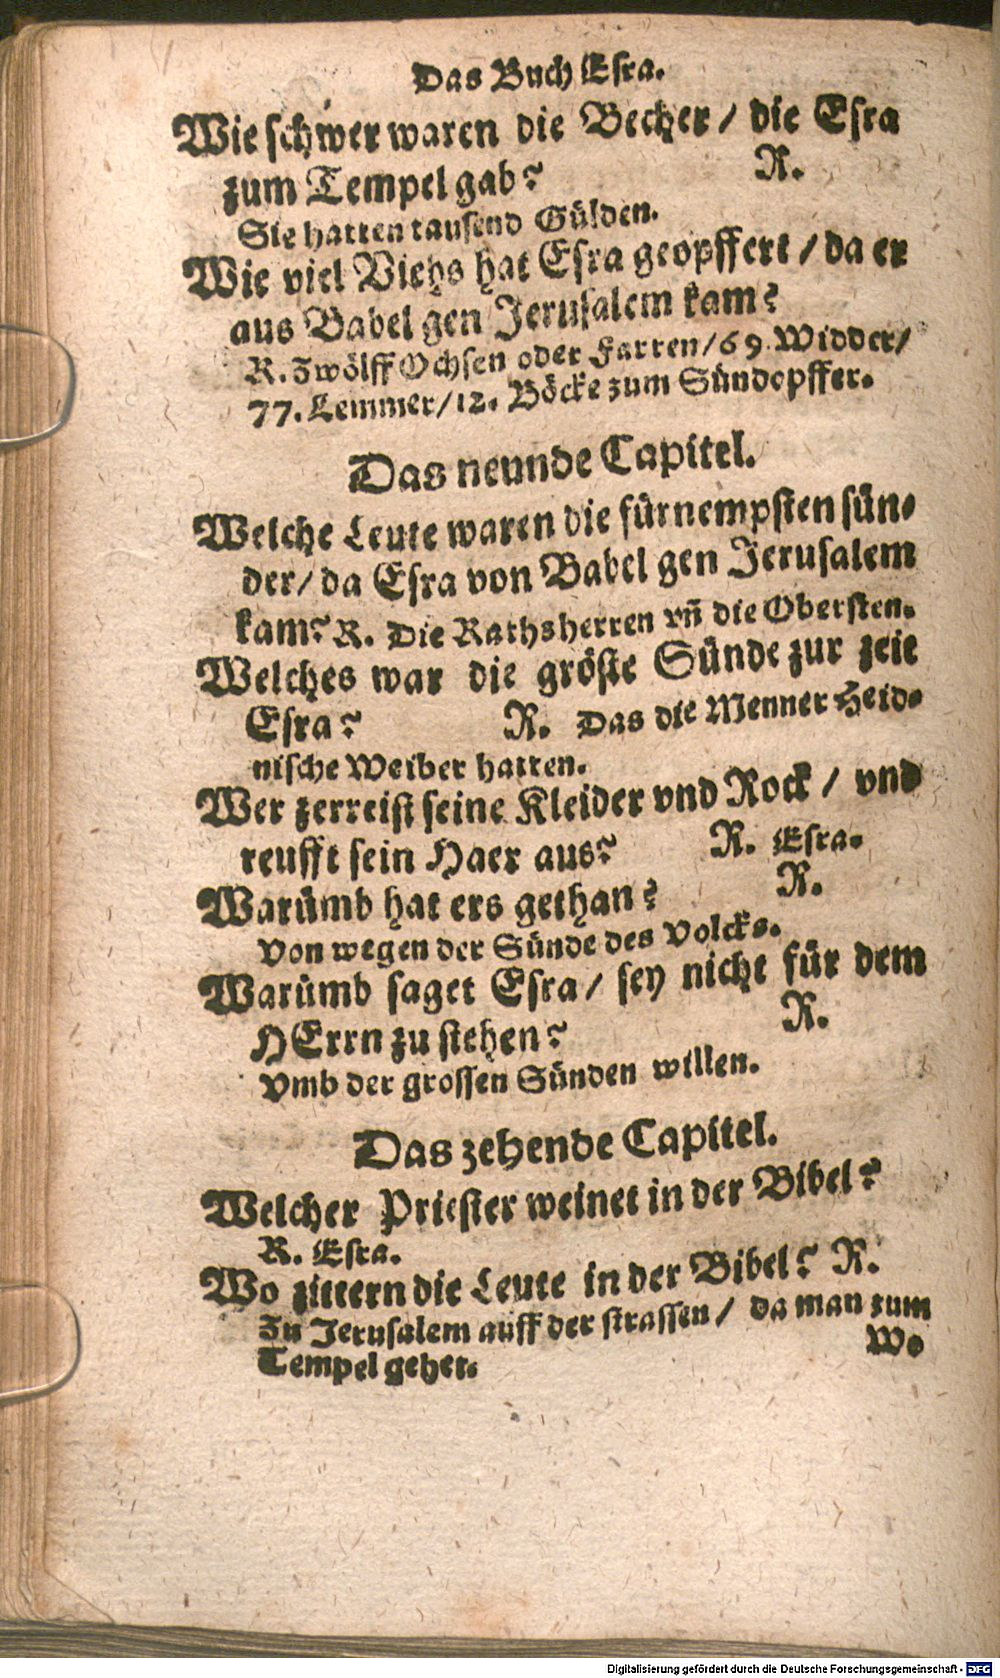 Das Buch Esra.
Wie schwer waren die Becher / die Esra
zum Tempel gab? R.
Sie hatten tausend Gülden.
Wie viel Viehs hat Esra geopffert / da er
aus Babel gen Jerusalem kam?
R. Zwölff Ochsen oder Farren / 69. Widder /
77. Lemmer / 12. Böcke zum Sündopffer.
Das neunde Capitel.
Welche Leute waren die fürnempsten sün-
der / da Esra von Babel gen Jerusalem
kam? R. Die Rathsherren vñ die Obersten.
Welches war die gröste Sünde zur zeit
Esra? R. Das die Menner Heid-
nische Weiber hatten.
Wer zerreist seine Kleider vnd Rock / vnd
reufft sein Haer aus? R. Esra.
Warümb hat ers gethan? R.
Von wegen der Sünde des Volcks.
Warümb saget Esra / sey nicht für dem
HErrn zu stehen? R.
Vmb der grossen Sünden willen.
Das zehende Capitel.
Welcher Priester weinet in der Bibel?
R. Esra.
Wo zittern die Leute in der Bibel? R.
Zu Jerusalem auff der strassen / da man zum
Tempel gehet.
Wo
Digitalisierung gefördert durch die Deutsche Forschungsgemeinschaft - DFG